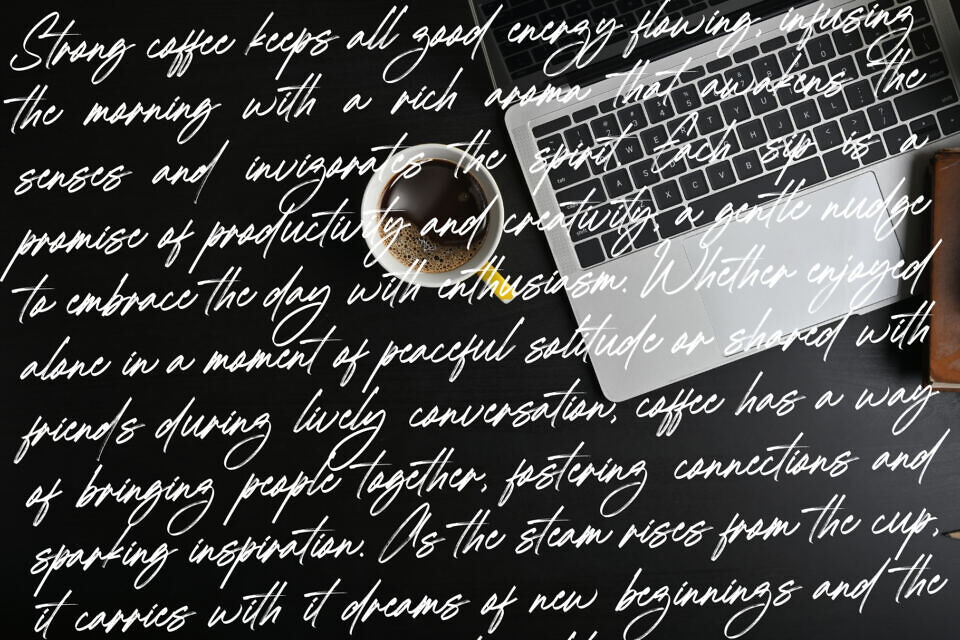 Strong coffee keeps all good energy flowing, infusing
the morning with a rich aroma that awakens the
senses and invigorates the spirit. Each sip is a
promise of productivity and creativity, a gentle nudge
to embrace the day with enthusiasm. Whether enjoyed
alone in a moment of peaceful solitude or shared with
friends during lively conversation, coffee has a way
of bringing people together, fostering connections and
sparking inspiration. As the steam rises from the cup,
it carries with it dreams of new beginnings and the